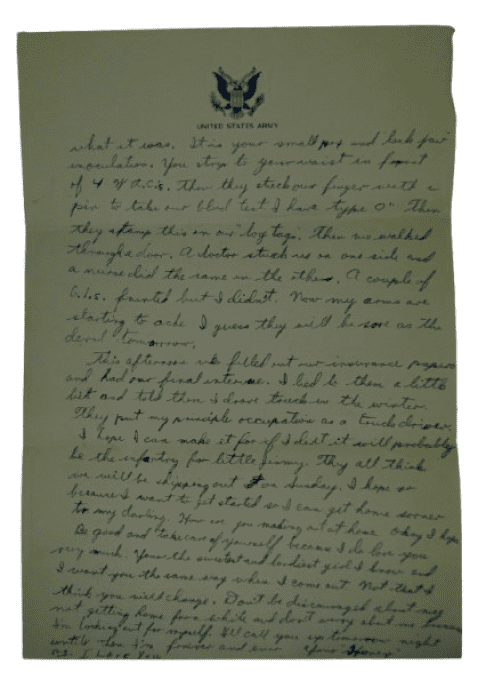 UNITED STATES ARMY
what it was. It is your small pox and lock jaw
inoculation. You strip to your waist in front
of 4 W.A.C.s. Then they stuck our finger with a
pin to take our blood test I have type "O" Then
they stamp this on our dog tags. Then we walked
through a door. A doctor stuck us on one side and
a nurse did the same in the other. A couple of
G.I.s. fainted but I didn't. Now my arms are
starting to ache I guess they will be sore as the
devil tomorrow.
This afternoon we filled out our insurance papers
and had our final interview. I lied to them a little
bit and told them I drove truck in the winter.
They put my principle occupation as a truck driver.
I hope I can make it for if I don't it will probably
be the infantry for little jimmy. They all think
we will be shipping out on Sunday. I hope so
because I want to get started so I can get home sooner
to my darling. How are you making out at home Okay I hope
Be good and take care of yourself because I do love you
very much. Your the sweetest and loveliest girl I know and
I want you the same way when I come out. Not that I
think you would change. Don't be discouraged about my
not getting home for a while and don't worry about me because
I'm looking out for myself. I'll call you up tomorrow night
until then I'm forever and ever "Your Honey"
P.S. I Love You